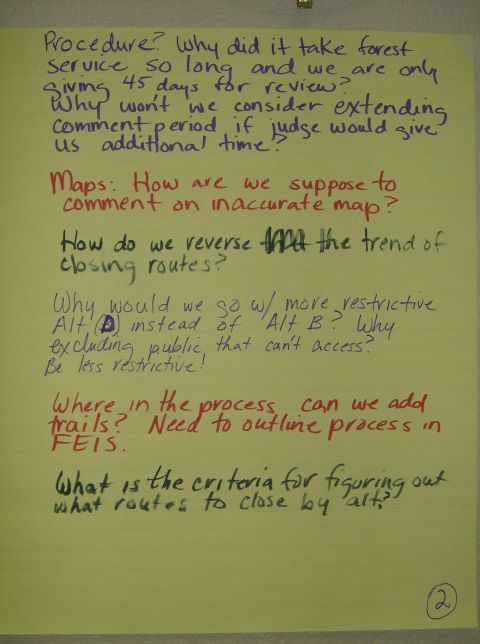 Procedure? Why did it take forest
service so long and we are only
giving 45 days for review?
Why won't we consider extending
comment period if judge would give
us additional time?
Maps: How are we suppose to
comment on inaccurate map?
How do we reverse the trend of
closing routes?
Why would we go w/ more restrictive
Alt (D) instead of Alt B? Why
excluding public, that can't access?
Be less restrictive!
Where in the process can we add
trails? Need to outline process in
FEIS.
What is the criteria for figuring out
what routes to close by alt?
2